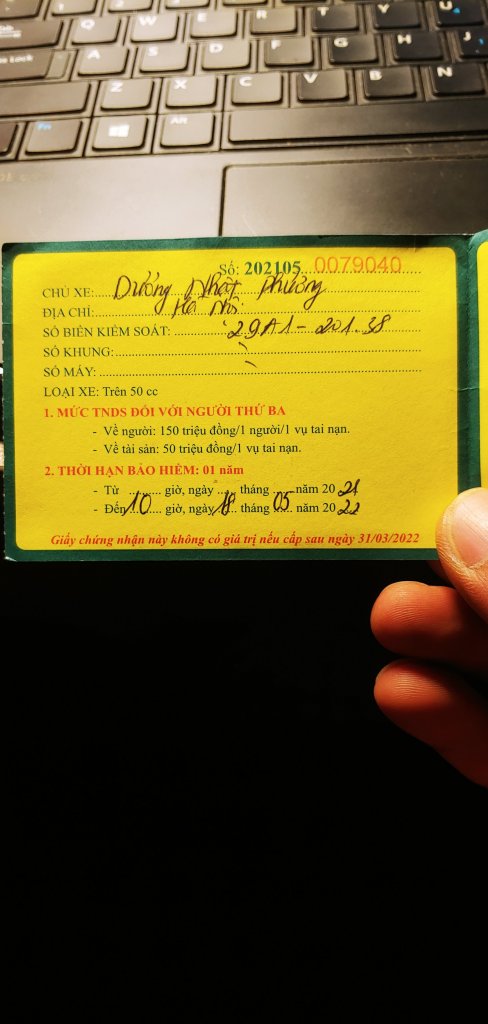 Q W E R T Y U
A S D F G H J
Z X C V B N
Fn Alt
Số: 202105 0079040
CHỦ XE: Dương Nhật Phương
ĐỊA CHỈ: Hà Nội
SỐ BIỂN KIỂM SOÁT: 29A1 - 201.38
SỐ KHUNG:
SỐ MÁY:
LOẠI XE: Trên 50 cc
1. MỨC TNDS ĐỐI VỚI NGƯỜI THỨ BA
- Về người: 150 triệu đồng/1 người/1 vụ tai nạn.
- Về tài sản: 50 triệu đồng/1 vụ tai nạn.
2. THỜI HẠN BẢO HIỂM: 01 năm
- Từ ........ giờ, ngày ..... tháng ...... năm 2021
- Đến 10 giờ, ngày 18 tháng 05 năm 2022
Giấy chứng nhận này không có giá trị nếu cấp sau ngày 31/03/2022